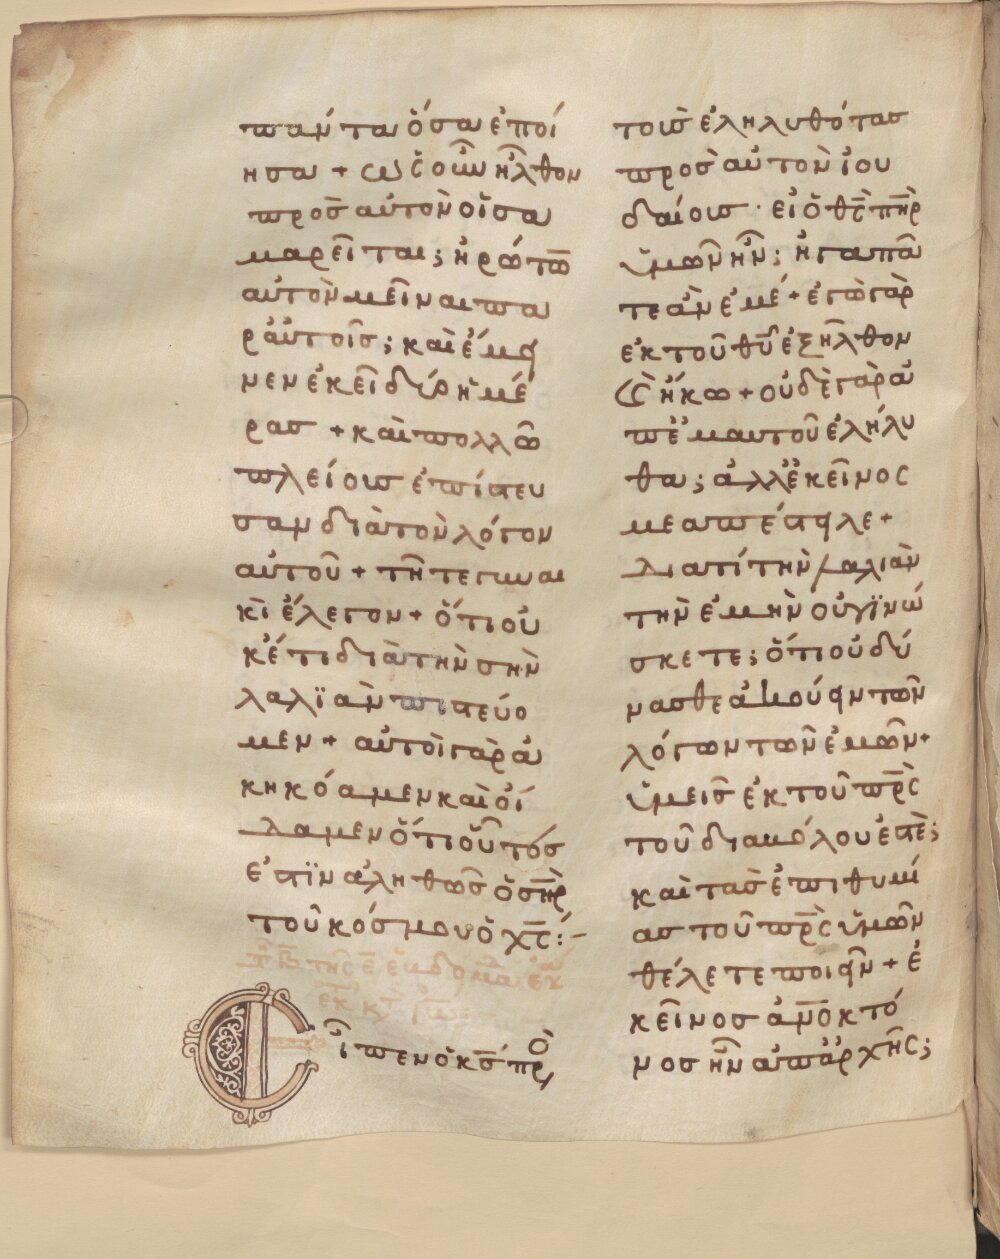 πάντα ὅσα ἐποί
ησα + ὡς οὖν ἦλθον
πρὸς αὐτὸν οἱ σα
μαρεῖται; ἠρώτω̅
αὐτὸν μεῖναι πα
ρ αὐτοῖς; καὶ ἔμει
νεν ἐκεῖ δύο ἡμέ
ρας + καὶ πολλῶ
πλείους ἐπίστευ
σαν διὰ τὸν λόγον
αὐτοῦ + τῆ τε γυναι
κὶ ἔλεγον + ὅτι οὐ
κέτι διὰ τὴν σὴν
λαλϊὰν πιστεύο
μεν + αὐτοὶ γὰρ ἀ
κηκόαμεν καὶ οἴ
δαμεν ὅτι οὗτός
ἐστϊν ἀληθῶς ὁ σ̅η̅ρ
τοῦ κόσμου ὁ χ̅ς̅:-
τῆς ε̅ ἑβδομά ἐκ
ἐκ κτ ἰω
Εἶπεν ὁ κ̅ς̅ πρ
τοὺς ἐληλυθότας
πρὸς αὐτὸν ἰου
δαίους · εἰ ὁ θ̅ς̅ π̅η̅ρ
ὑμῶν ἦν; ἠγαπᾶ
τε ἂν ἐμέ + ἐγὼ γὰρ
ἐκ τοῦ θ̅υ̅ ἐξῆλθον
καὶ ἥκω + οὐδὲ γὰρ ἀ
π ἐμαυτοῦ ἐλήλυ
θα; ἀλλ ἐκεῖνος
με ἀπέστειλε +
διατί τὴν λαλιὰν
τὴν ἐμὴν οὐ γϊνώ
σκετε; ὅτι οὐ δύ
νασθε ἀκούειν τῶν
λόγων τῶν ἐμῶν +
ὑμεῖς ἐκ τοῦ π̅ρ̅ς̅
τοῦ διαβόλου ἐστὲ;
καὶ τὰς ἐπιθυμί
ας τοῦ π̅ρ̅ς̅ ὑμῶν
θέλετε ποιεῖν + ἐ
κεῖνος ἀ̅ν̅ο̅κτό
νος ἦν ἀπ ἀρχῆς;